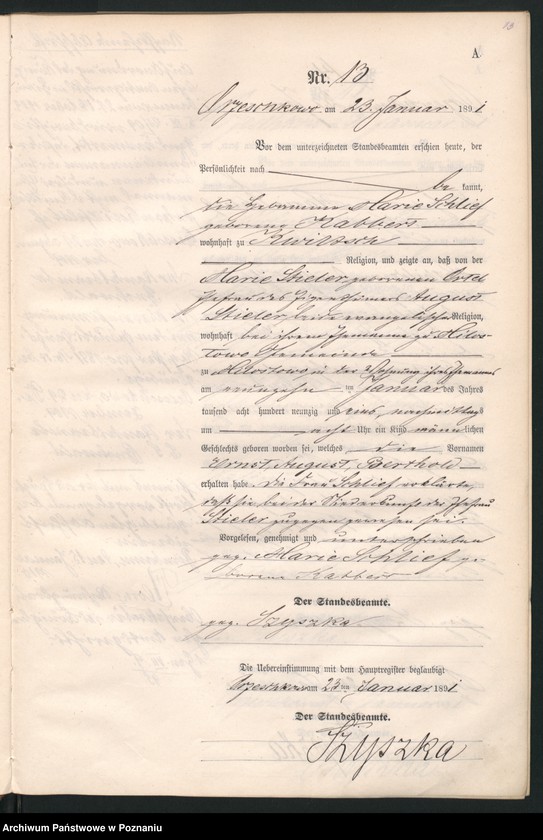 A
Nr. 13
Orzeschkowo am 23. Januar 1891
Vor dem unterzeichneten Standesbeamten erschien heute, der
Persönlichkeit nach
be kannt,
die Hebamme Marie Schlief
geborene Kabbert
wohnhaft zu Kwiltsch
Religion, und zeigte an, daß von der
Marie Stieler geborenen
Ehefrau des Eigenthümers August
Stieler, beide evangelischer Religion,
wohnhaft bei ihrem Ehemanne zu Milos-
towo Gemeinde
zu Milostowo in der Wohnung ihres Ehemannes
am neunzehn ten Januar des Jahres
tausend acht hundert neunzig und eins, nachmittags
um acht Uhr ein Kind männlichen
Geschlechts geboren worden sei, welches die Vornamen
Ernst, August, Berthold
erhalten habe. Die Frau Schlief erklärte,
daß sie bei der Niederkunft der Ehefrau
Stieler zugegen gewesen sei.
Vorgelesen, genehmigt und unterschrieben
gez. Marie Schlief ge-
borene Kabbert
Der Standesbeamte.
gez. Szyszka
Die Uebereinstimmung mit dem Hauptregister beglaubigt
Orzeschkowo am 23 ten Januar 1891
Der Standesbeamte.
Szyszka
Archiwum Państwowe w Poznaniu